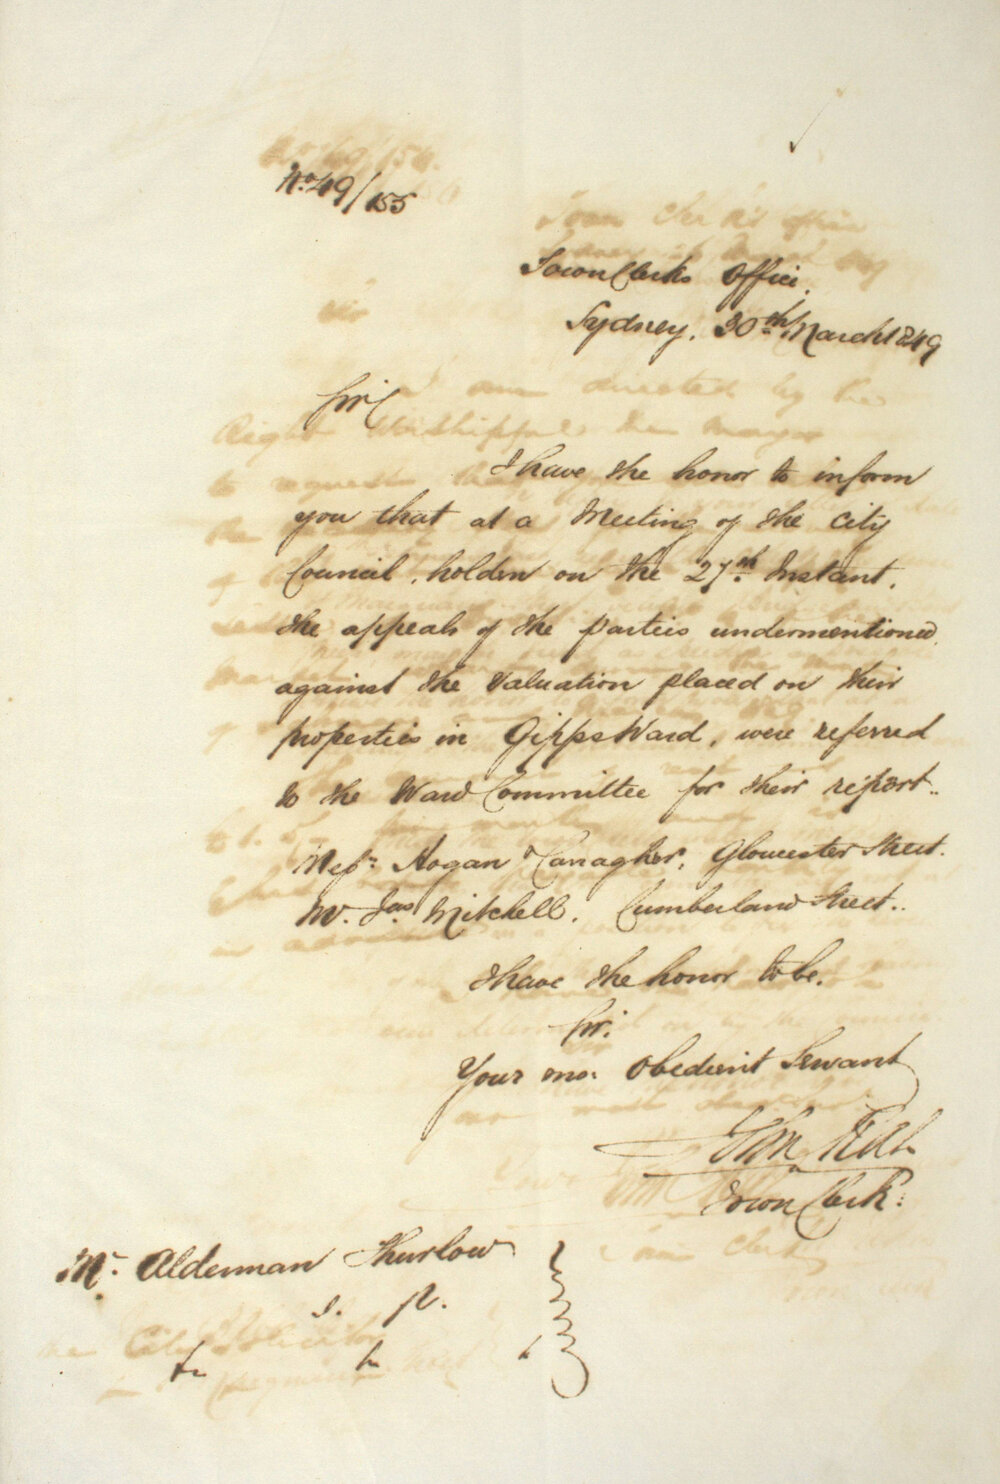 No. 49/155
Town Clerks Office.
Sydney. 30th March 1849
Sir
I have the honor to inform
you that at a Meeting of the City
Council, holden on the 27th Instant,
the appeals of the parties undermentioned,
against the Valuation placed on their
properties in Gipps Ward, were referred
to the Ward Committee for their report..
Messrs. Hogan Canagher, Gloucester Street.
Mr. Jas Mitchell. Cumberland Street..
I have the honor to be.
Sir.
Your mo. Obedient Servant
Town Clerk.
Mr. Alderman Thurlow
J. P.